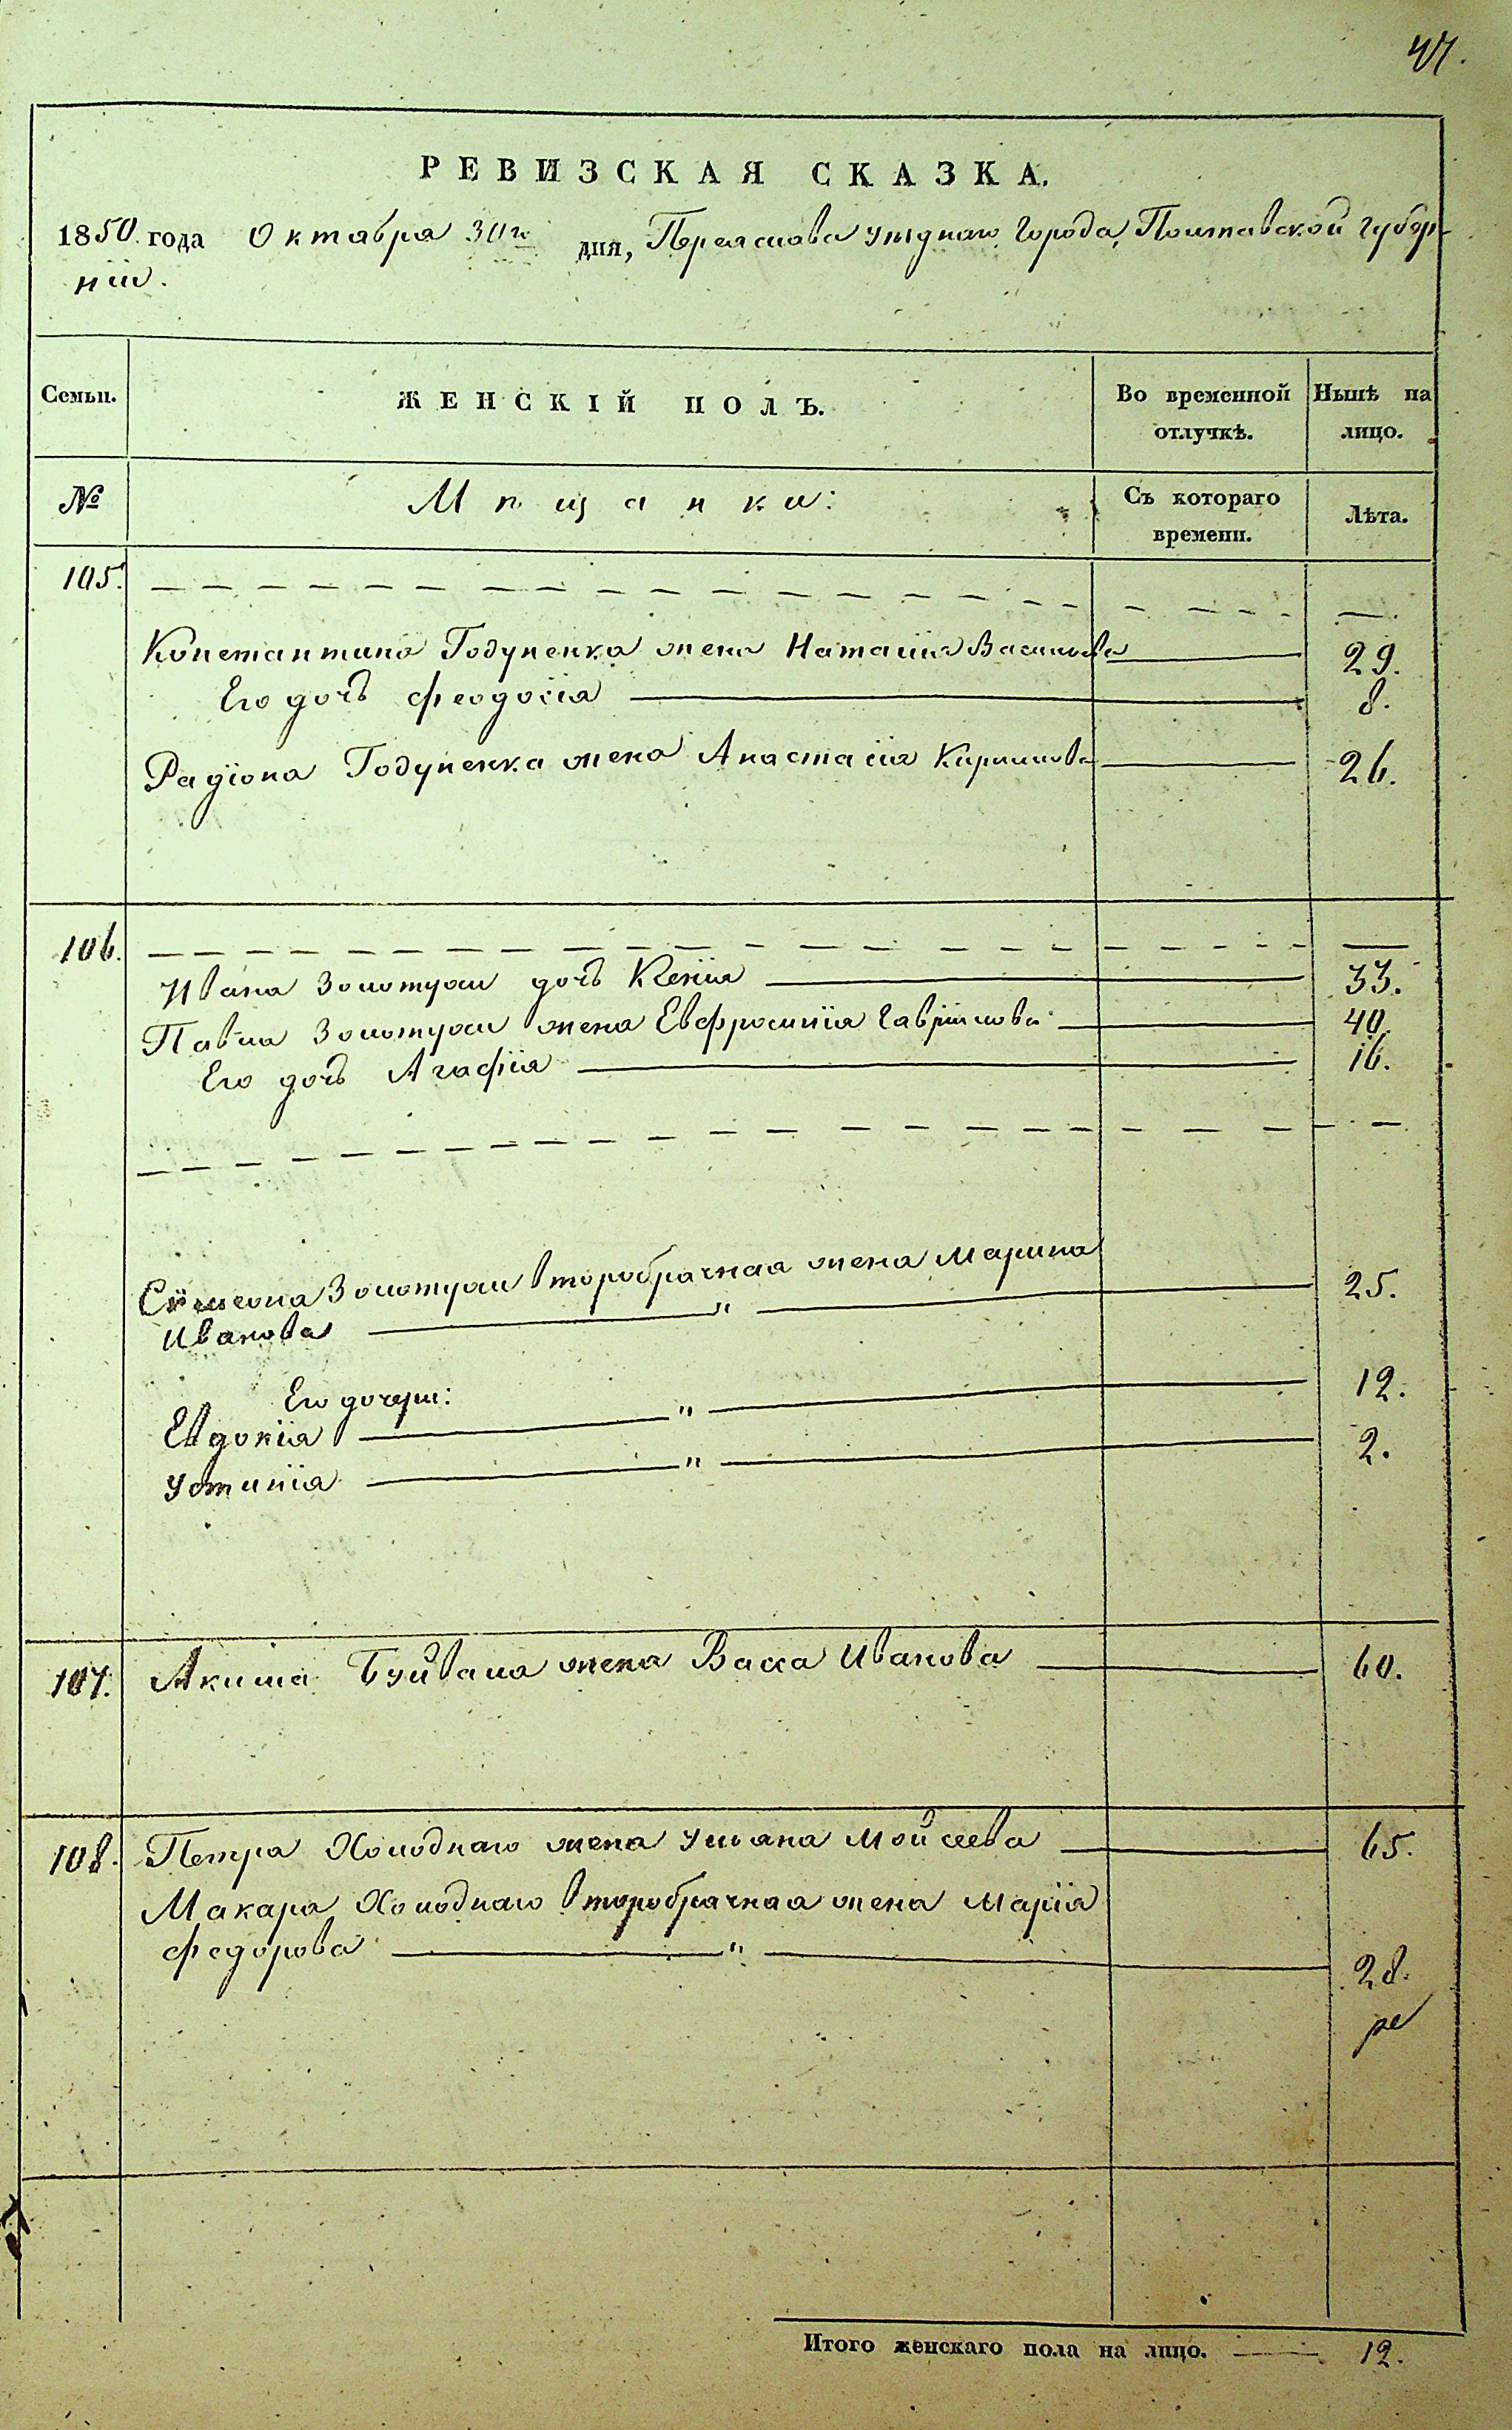 47.
РЕВИЗСКАЯ СКАЗКА.
1850. года Октября 30го дня, Переяслова уѣзднаго Города, Полтавской Губер-
ніи.
Семьи. ЖЕНСКІЙ ПОЛЪ. Во временной отлучкѣ. Нынѣ на лицо.
№ Мѣщанки: Съ котораго времени. Лѣта.
105.
Константина Годуненка жена Наталія Васильева 29.
Его дочь Феодосіа 8.
Радіона Годуненка жена Анастасіа Кирилова 26.
106.
Ивана Золотухи дочь Ксеніа 33.
Павла Золотухи жена Евфросиніа Гавріилова 40.
Его дочь Агафіа 16.
Симеона Золотухи второбрачная жена Марина
Иванова " 25.
Его дочери:
Евдокіа " 12.
Устиніа " 2.
107. Акима Буйвала жена Васса Иванова 60.
108. Петра Холоднаго жена Уліана Мойсеева 65.
Макара Холоднаго второбрачная жена Маріа
Федорова " 28.
Итого женскаго пола на лицо. 12.